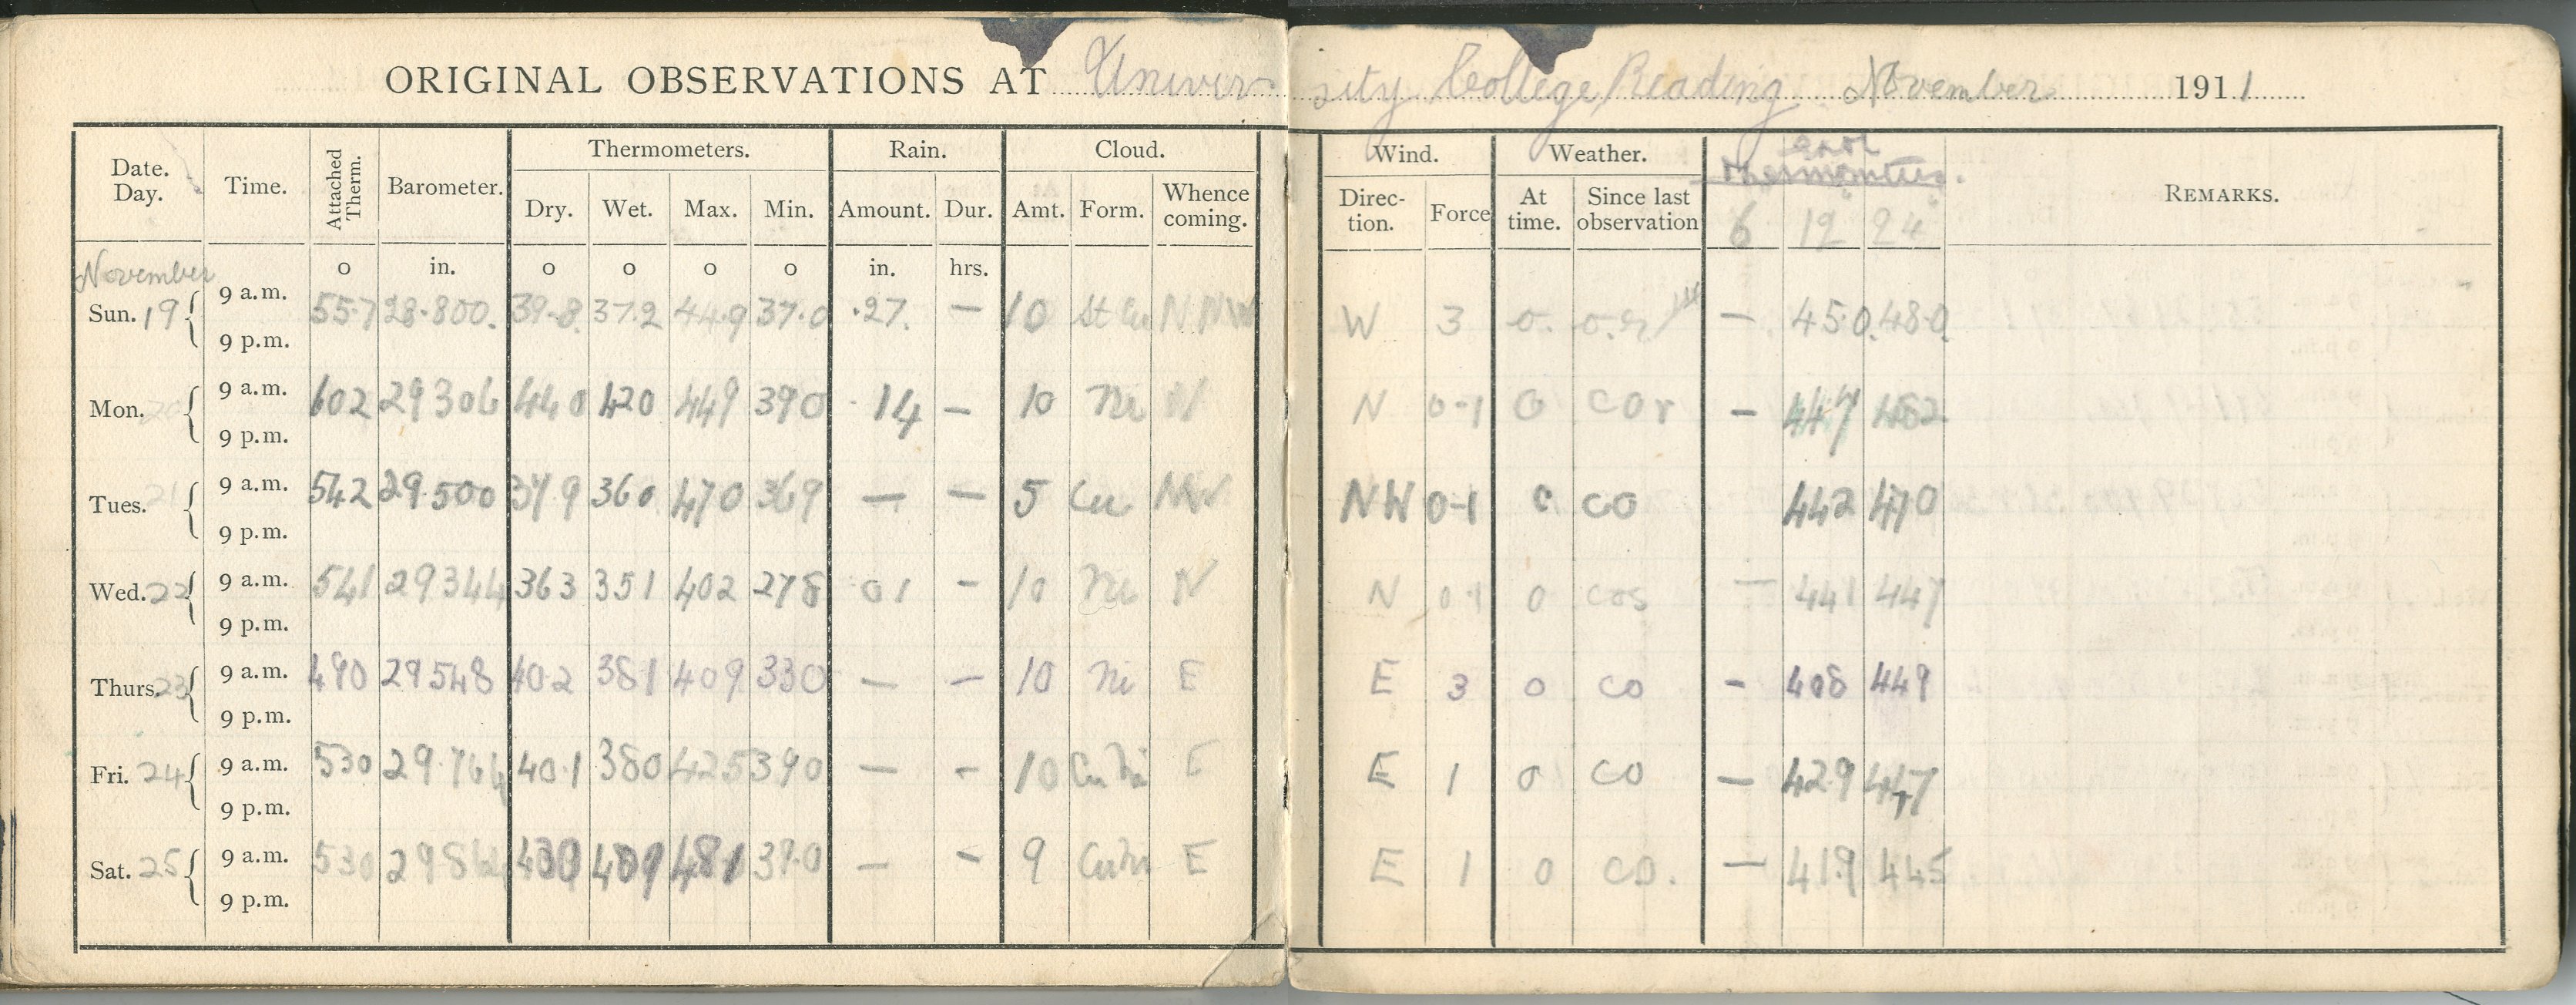 ORIGINAL OBSERVATIONS AT University College Reading November 1911
Date. Day. Time. Attached Therm. Barometer. Thermometers. Dry. Wet. Max. Min. Rain. Amount. Dur. Cloud. Amt. Form. Whence coming. Wind. Direc- tion. Force Weather. At time. Since last observation Thermometers. 6 12 24 REMARKS.
November o in. o o o o in. hrs.
Sun. 19 9 a.m. 55.7 28.800. 39.8. 37.2 44.9 37.0 .27. — 10 St Cu N NW W 3 o. — 45.0. 48.0.
9 p.m.
Mon. 20 9 a.m. 602 29306 440 420 449 390 .14 — 10 Ni N N 0-1 O cor — 447 482
9 p.m.
Tues. 21 9 a.m. 542 29.500 379 360 470 369 — — 5 Cu NW NW 0-1 c co 442 470
9 p.m.
Wed. 22 9 a.m. 541 29344 363 351 402 278 01 - 10 Ni N N 0-1 o cos — 441 447
9 p.m.
Thurs. 23 9 a.m. 490 29548 402 381 409 330 — — 10 Ni E E 3 o co - 408 449
9 p.m.
Fri. 24 9 a.m. 530 29.764 40.1 380 425 390 — - 10 Cu Ni E E 1 o co — 42.9 447
9 p.m.
Sat. 25 9 a.m. 530 29864 430 409 481 39.0 — - 9 CuNi E E 1 o co. — 41.9 445
9 p.m.